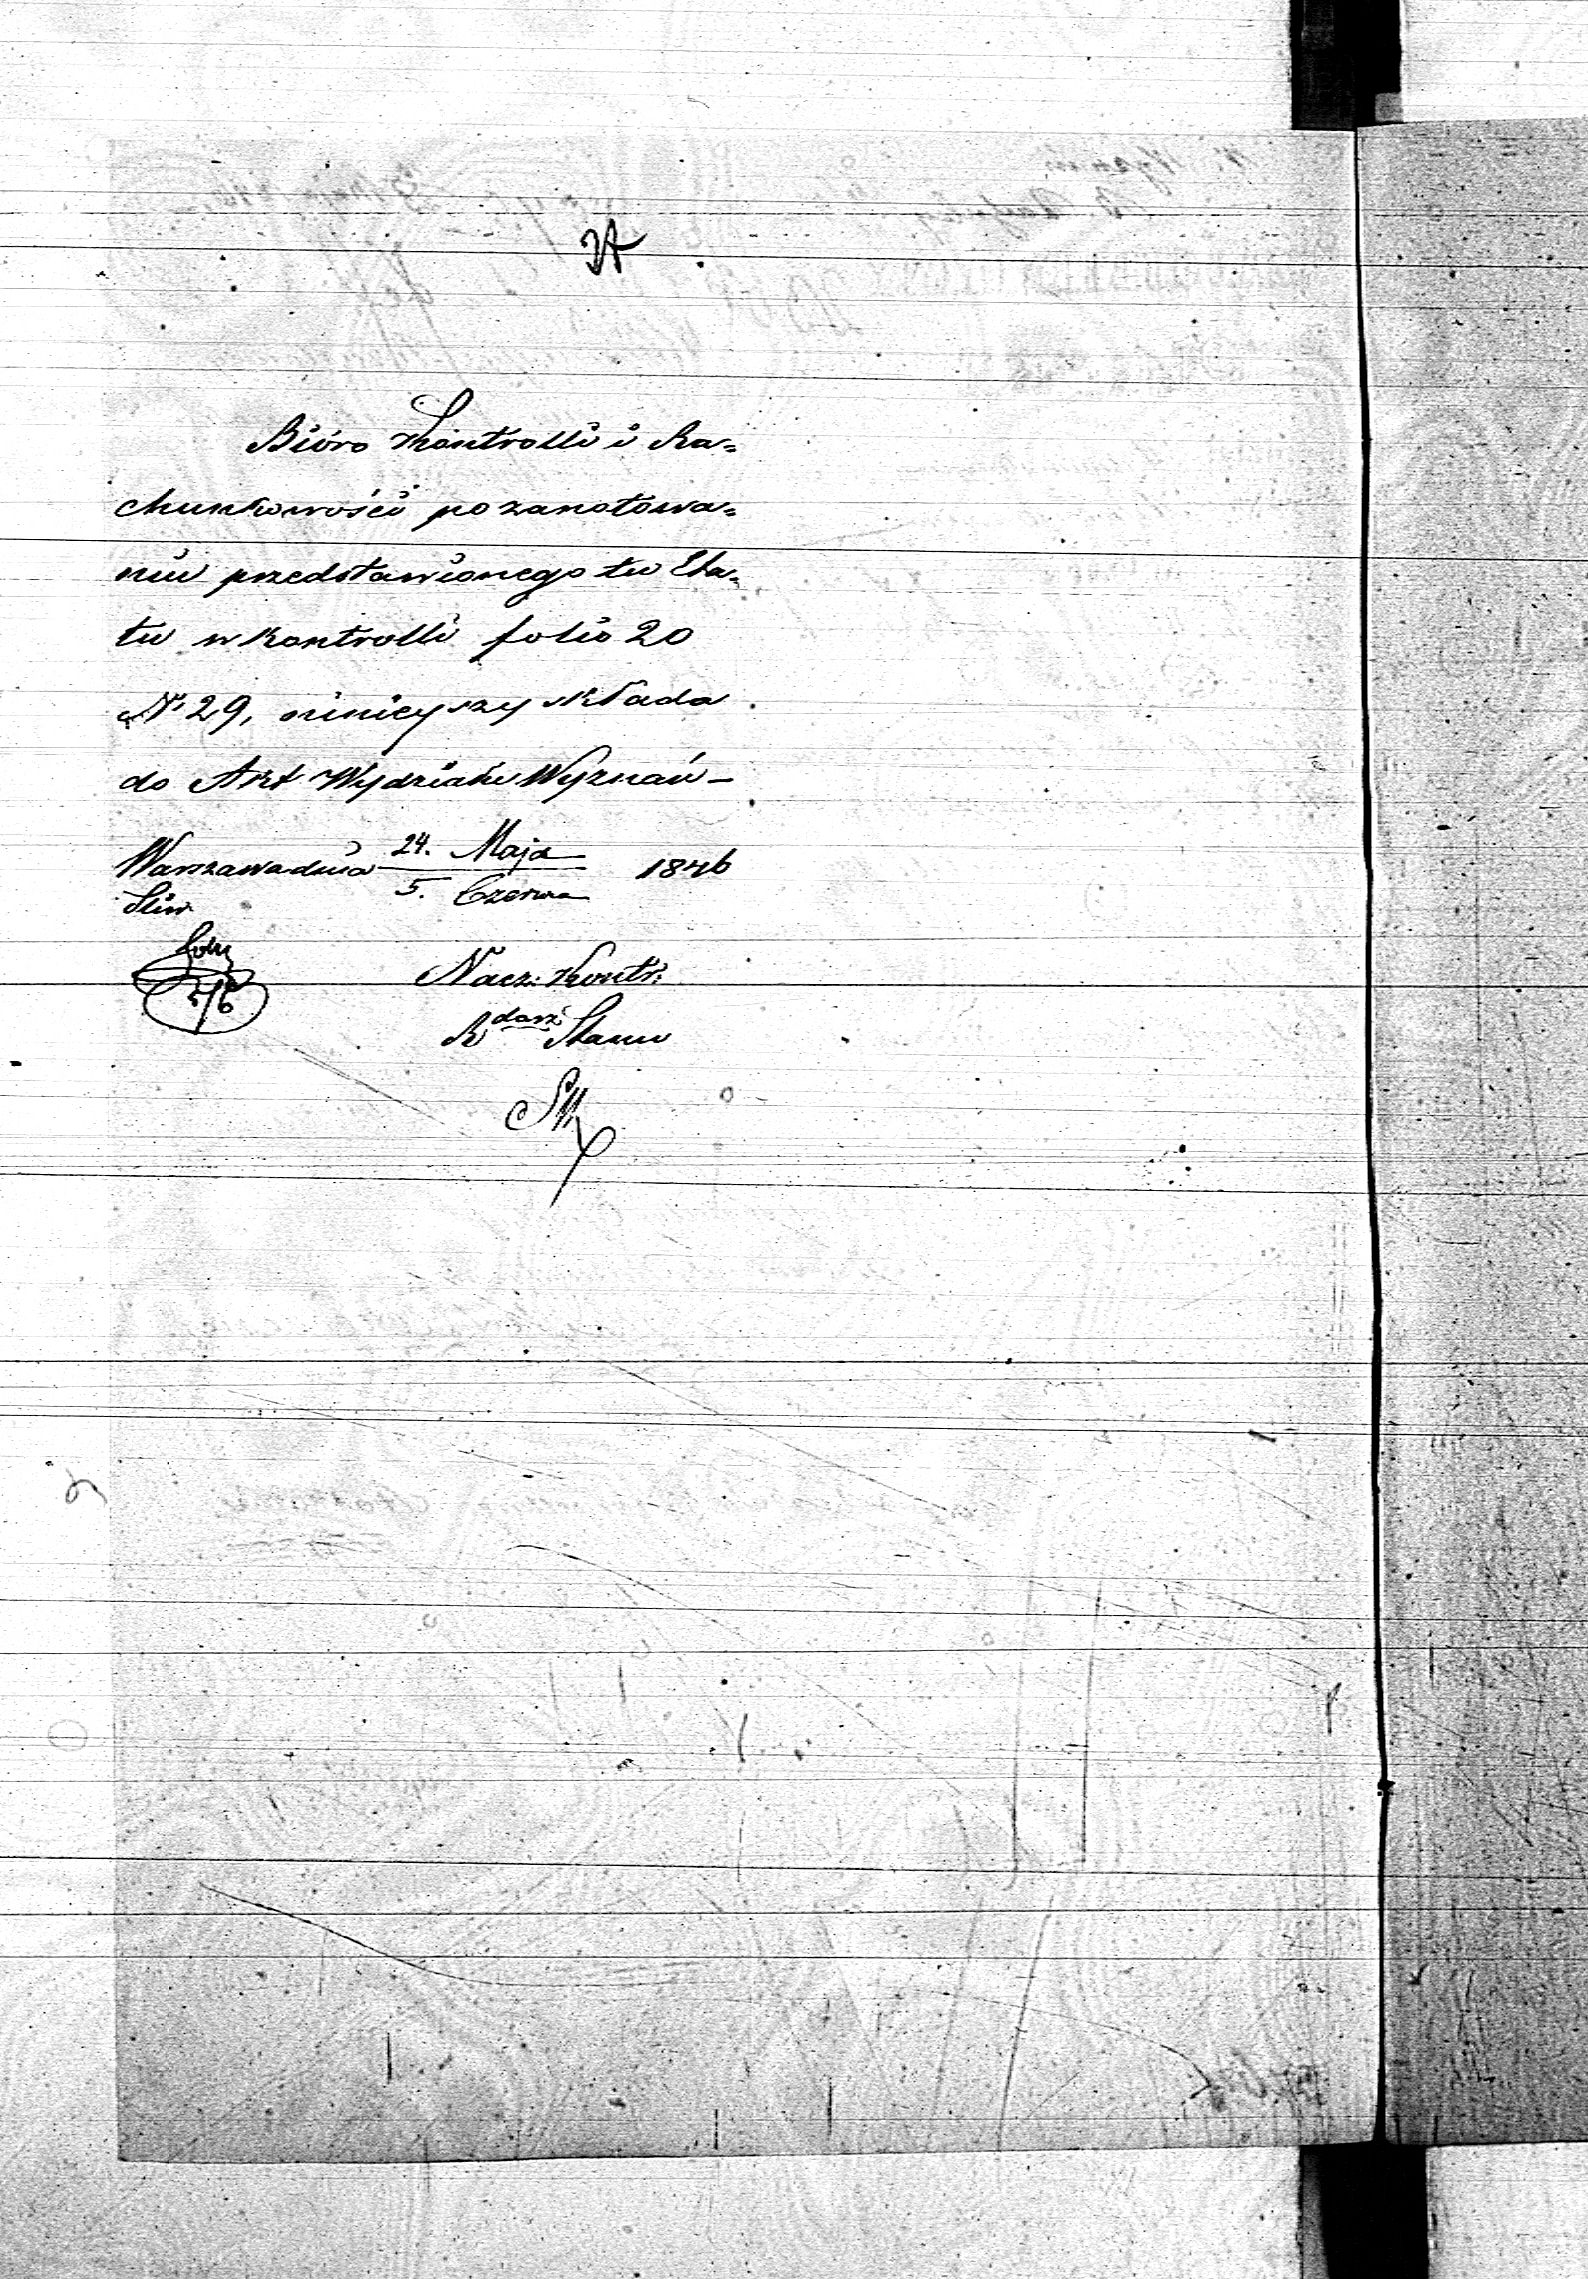 Bióro Kontrolli i Ra=
chunkowości po zanotowa=
niu przedstawionego tu Eta=
tu w Kontrolli folio 20
N° 29, ninieyszy składa
do Akt Wydziału Wyznań –
Warszawa dnia 24. Maja / 5. Czerwca 1846
Nacz: Kontr:
R darz Stanu